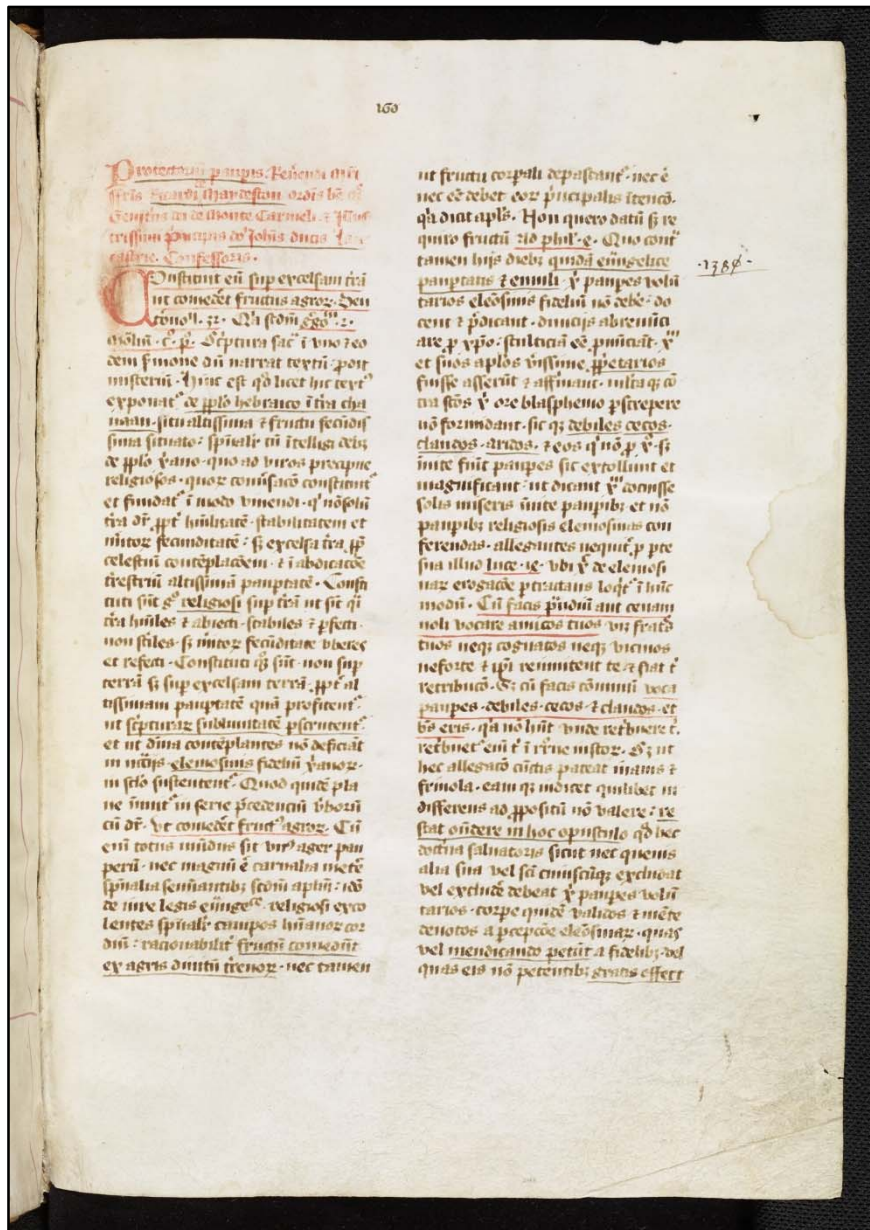 160
Protectoriū paupis. Reuēndi mḡri
ffris Ricardi Maydeston ordīs bē
Genitͥcis dei de Monte Carmeli. ⁊ Jllus
trissimi pͥncipis dnī Johīs ducis Lan
castrie. Confessoris.
Constituit eū sup excelsam tr̄a
ut comedet fructus agroꝝ. Deu
t̄ono. 32. Qͥa scdm̄ gͤgoͬ. 2.
moͣliū. c̊. pͦ. Scͥptura sacͣ ī uno ⁊ eo
dem sͤmone dū narrat textū: pdit
misteriū. Hinc est qd̄ licet hic textꝰ
exponatͬ de pp̄lo hebraico ī tr̄a cha
naan. situ altissima ⁊ fructu fecūdis
sima situato: spūalr̄ tn̄ ītelligi debꝫ
de pp̄lo xͥano. quo ad viros precipue
religiosos. quoꝝ conūsacō constituitͬ
et fundatͬ ī modo viuendi. qͥ nōsolū
tr̄a dr̄ ꝓpt̄ hūilitatē. stabilitatem et
fecunditatē: sꝫ excelsa tr̄a ꝓpt̄
celestiū contēplacōem. ⁊ ī abdicacōe
tr̄estriū altissimā paupͭatē. Consti
tuti sūt gͦ religiosi sup tr̄ā ut sīt qͣi
tr̄a hūiles ⁊ abiecti. stabiles ⁊ pfecti.
non stͥiles. sꝫ fecūditate vberes
et refecti. Constituti sūt. non sup
terrā sꝫ sup excelsam terrā. ꝓpt̄ al
tissimam paupͭatē quā profitentͬ.
ut scͥpturaꝝ sublimitatē pscrutentͬ.
et ut diuīa contēplantes nō deficiāt
in elemosinis fidelium xͥanoꝝ.
in sustententͬ. Quod quidē pla
ne inuūit in serie pcedencium vboꝝ
cū dr̄. Vt comedet fructꝰ agroꝝ. Cū
eni totus mūdus sit ager pau
perū. nec magnū ē carnalia metē
spūalia seminantibꝫ scdm̄ aplm̄: idō
de iure legis euūge religiosi exco
lentes spūalr̄ campos hūanoꝝ cor
diū: racionabilit̄ fructū comedūt
ex agris diuitū t̄renoꝝ. nec tamen
ut fructu corpali depastantͬ. nec ē
nec ēē debet eoꝝ pͥncipalis ītencō.
qͥa dicit aplͥs. Non quero datū sꝫ re
quiro fructū ad phil. 4. Quo contͣ
tamen hijs diebꝫ quidā euūgelice
paupͭatis ⁊ emuli. xͥ paupes volū
tarios eleōsinis fideliū nō debē: do
cent ⁊ pdicant. diuicijs abrenūci
are p xpo: stulticiā ēē pnūciāt. xͫ
et suos aplos vissime ꝓpͥetarios
fuisse asserūt ⁊ affirmant. multa qꝫ cō
tra stōs xͥ ore blasphemo pstrepere
nō formidant. sic qꝫ debiles cecos.
claudos. aridos. ⁊ eos qͥ nō p xͦ. sꝫ
inuite fiūt paupes sic extollunt et
magnificant: ut dicant xͫ docuisse
solis miseris inuite paupibꝫ et nō
paupibꝫ religiosis elemosinas con
ferendas. allegantes p pte
sua illud luce. 14. vbi xͨ de elemosi
naꝝ erogacōe ptractans loqtͬ ī hūc
modū. Cū facis pͣndiū aut cenam
noli vocare amicos tuos vꝫ fratͤs
tuos neqꝫ cognatos neqꝫ vicinos
neforte ⁊ ipī reinuitent te ⁊ fiat tͥ
retribucō. Sꝫ cū facis cōuiuiū voca
paupes. debiles. cecos. ⁊ claudos. et
bt̄s eris. qͥa nō hn̄t vnde retͥbuere tͥ.
retͥbuetͬ eni tͥ ī rͤrne iustoꝝ. Sꝫ ut
hec allegacō cūctis pateat inanis ⁊
friuola. eam qꝫ quilibet in
differens ad ꝓpositū nō valere: re
stat oñdere in hoc opusculo qd̄ hec
doctͥna saluatoris sicut nec queuis
alia sua vel scī cuiuscūqꝫ excludat
vel excludē debeat xͥ paupes volū
tarios. corpe quidē validos ⁊ mēte
deuotos a pcepcōe eleōsinaꝝ. quas
vel mendicando petūt a fidelibꝫ. vel
quas eis nō petentibꝫ gratis offerūt
.1380.